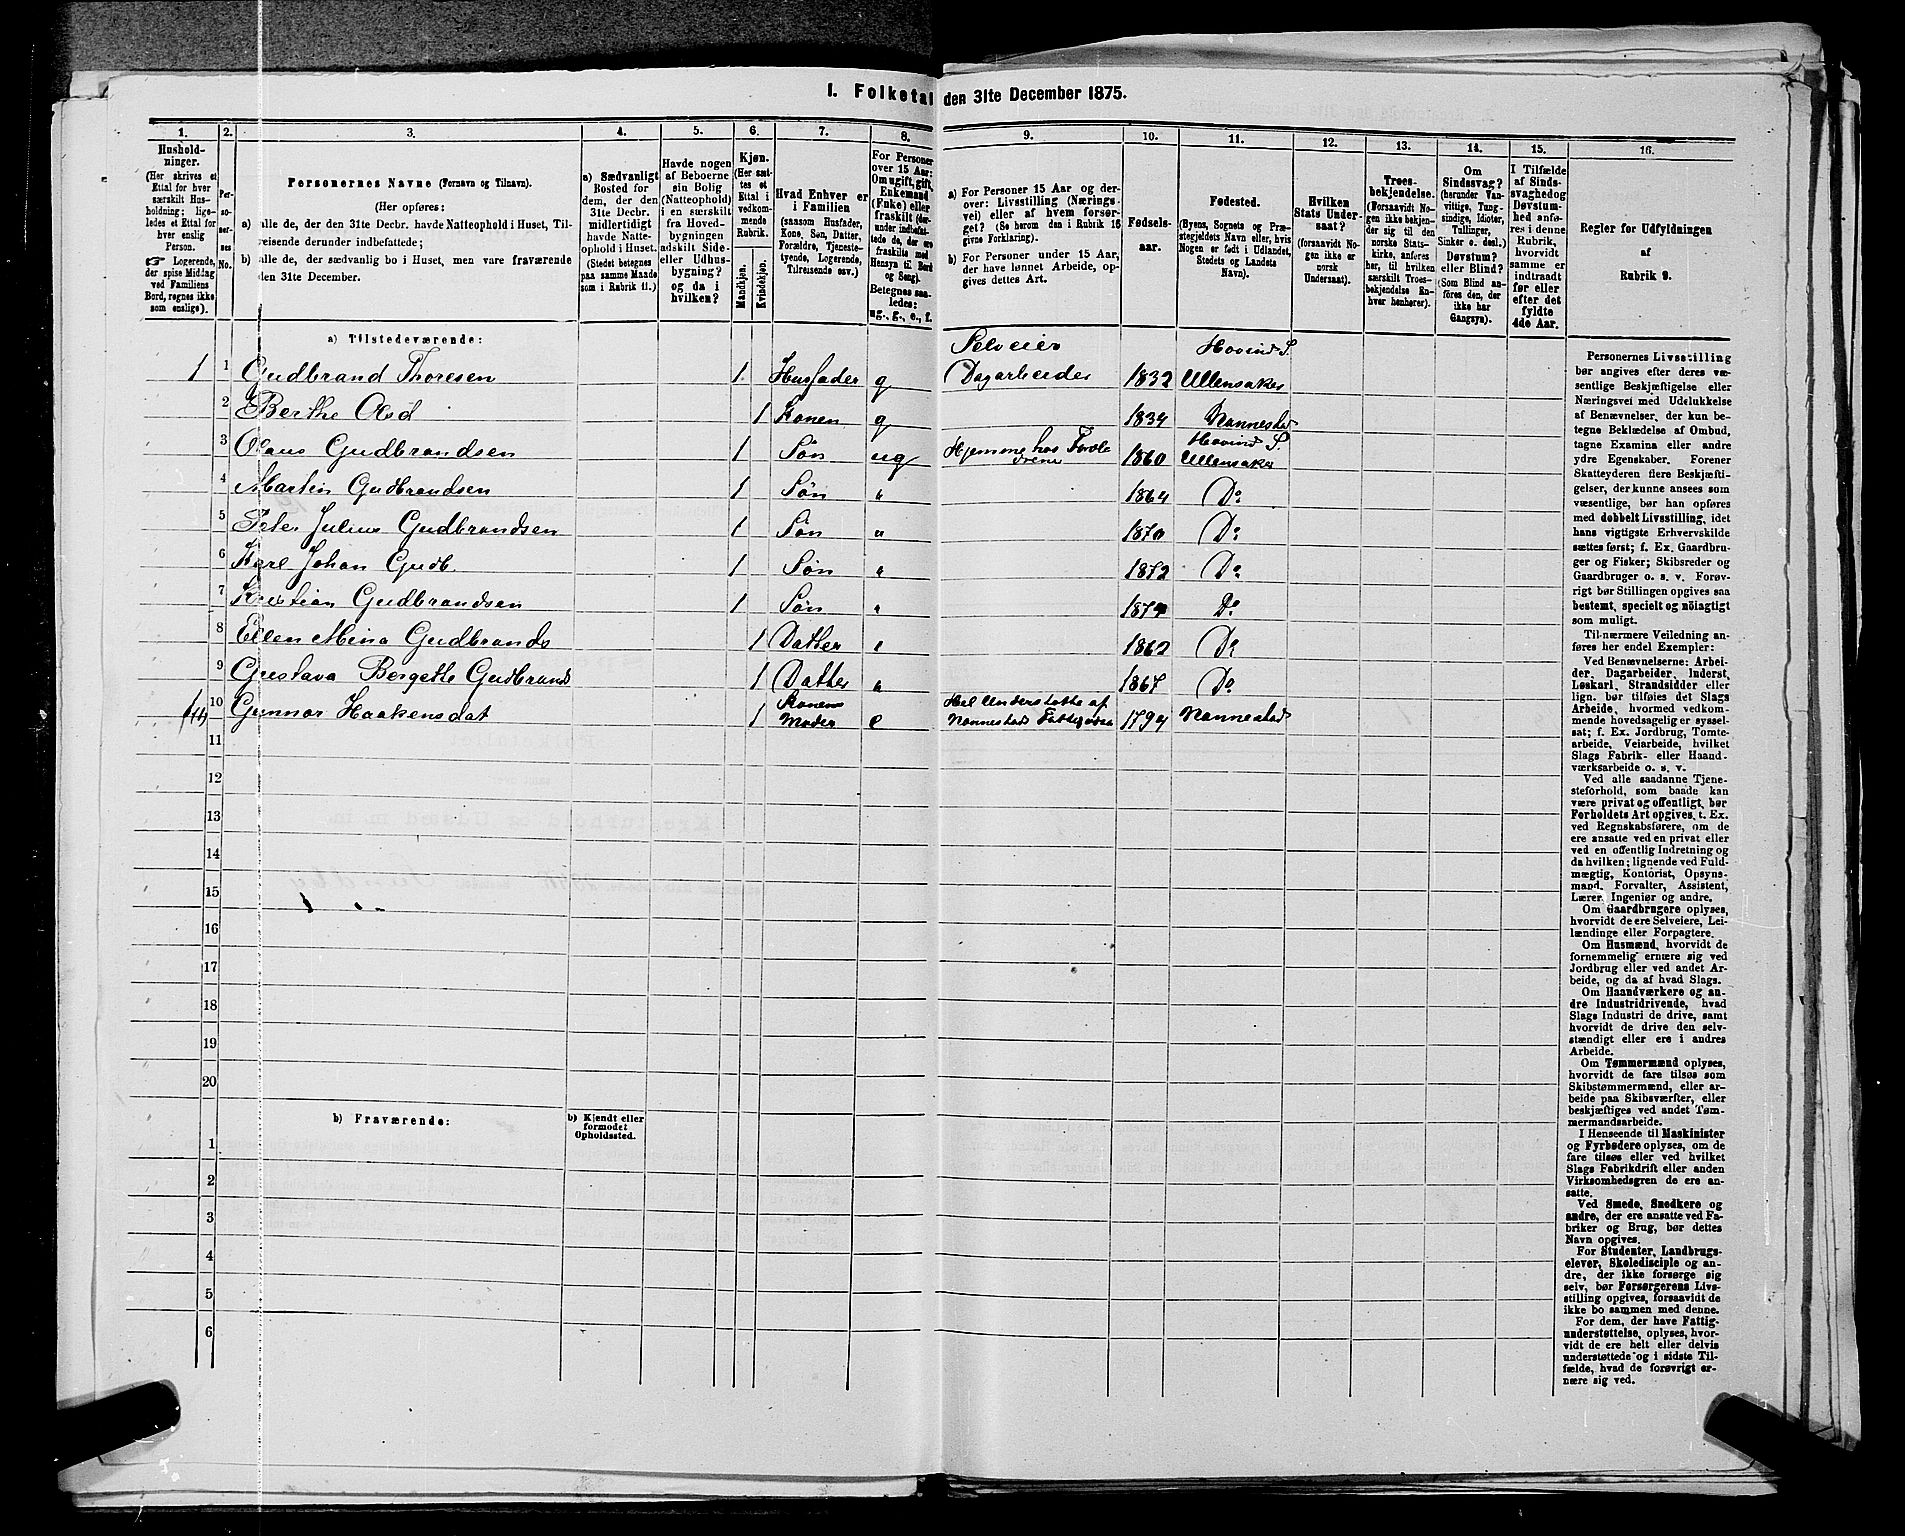 I. Folketal den 31te December 1875.
1. 2. 3. 4. 5. 6. 7. 8. 9. 10. 11. 12. 13. 14. 15. 16.
Hushold-
ninger.
(Her skrives et
Ettal for hver
særskilt Hus-
holdning; lige-
ledes et Ettal for
hver enslig
Person.
☞ Logerende,
der spise Middag
ved Familiens
Bord, regnes ikke
som enslige).
Per-
so-
ner-
nes
No.
Personernes Navne (Fornavn og Tilnavn).
(Her opføres:
a) alle de, der den 31te Decbr. havde Natteophold i Huset, Til-
reisende derunder indbefattede;
b) alle de, der sædvanlig bo i Huset, men vare fraværende
den 31te December.
a) Sædvanligt
Bosted for
dem, der den
31te Decbr.
midlertidigt
havde Natte-
ophold i Huset.
(Stedet betegnes
paa samme Maade
som i Rubrik 11.)
Havde nogen
af Beboerne
sin Bolig
(Natteophold)
i en særskilt
fra Hoved-
bygningen
adskilt Side-
eller Udhus-
bygning?
og da i
hvilken?
Kjøn.
(Her sæt-
tes et
Ettal i
vedkom-
mende
Rubrik.
Mandkjøn.
Kvindekjøn.
Hvad Enhver er
i Familien
(saasom Husfader,
Kone, Søn, Datter,
Forældre, Tjeneste-
tyende, Logerende,
Tilreisende osv.)
For Personer
over 15 Aar:
Om ugift, gift,
Enkemand
(Enke) eller
fraskilt (der-
under indbefat-
tede de, der ere
fraskilte med
Hensyn til Bord
og Seng).
Betegnes saa-
ledes:
ug., g., e., f.
a) For Personer 15 Aar og der-
over: Livsstilling (Nærings-
vei) eller af hvem forsør-
get? (Se herom den i Rubrik 16
givne Forklaring).
b) For Personer under 15 Aar,
der have lønnet Arbeide, op-
gives dettes Art.
Fødsels-
aar.
Fødested.
(Byens, Sognets og Præ-
stegjeldets Navn eller, hvis
Nogen er født i Udlandet,
Stedets og Landets
Navn).
Hvilken
Stats Under-
saat?
(forsaavidt No-
gen ikke er
norsk
Undersaat).
Troes-
bekjendelse.
(Forsaavidt No-
gen ikke bekjen-
der sig til den
norske Stats-
kirke, anføres
her, til hvilken
særskilt Troes-
bekjendelse En-
hver henhører).
Om
Sindssvag?
(herunder Van-
vittige, Tung-
sindige, Idioter,
Tullinger,
Sinker o. desl.)
Døvstum?
eller Blind?
(Som Blind an-
føres den, der
ikke har
Gangsyn).
I Tilfælde
af Sinds-
svaghed og
Døvstum-
hed anfø-
res i denne
Rubrik,
hvorvidt
samme er
indtraadt
før eller
efter det
fyldte
4de Aar.
Regler for Udfyldningen
af
Rubrik 9.
a) Tilstedeværende:
Selveier Hovind S.
1 1 Gudbrand Thoresen 1. Husfader g Dagarbeider 1832 Ullensaker
2 Berthe Olsd 1 Konen g 1834 Nannestad
Hovind S.
3 Olaus Gudbrandsen 1 Søn ug Hjemme hos Foræl
drene 1860 Ullensaker
4 Martin Gudbrandsen 1 Søn " 1864 Do
5 Peter Julius Gudbrandsen 1 Søn " 1870 Do
6 Karl Johan Gudb 1 Søn " 1872 Do
7 Kristian Gudbrandsen 1 Søn " 1874 Do
8 Ellen Mina Gudbrands 1 Datter " 1862 Do
9 Gustava Bergethe Gudbrands 1 Datter " 1867 Do
10 Gunnor Haakensdat 1 Konens
Moder e Hel Understøtte af
Nannestad Fattigvæsen 1794 Nannestad
11
12
13
14
15
16
17
18
19
20
b) Fraværende:
b) Kjendt eller
formodet
Opholdssted.
1
2
3
4
5
6
Personernes Livsstilling
bør angives efter deres væ-
sentlige Beskjæftigelse eller
Næringsvei med Udelukkelse
af Benævnelser, der kun be-
tegne Beklædelse af Ombud,
tagne Examina eller andre
ydre Egenskaber. Forener
Skatteyderen flere Beskjæfti-
gelser, der kunne ansees som
væsentlige, bør han opføres
med dobbelt Livsstilling, idet
hans vigtigste Erhvervskilde
sættes først; f. Ex. Gaardbru-
ger og Fisker; Skibsreder og
Gaardbruger o. s. v. Forøv-
rigt bør Stillingen opgives saa
bestemt, specielt og nöiagtigt
som muligt.
Til nærmere Veiledning an-
føres her endel Exempler:
Ved Benævnelserne: Arbei-
der, Dagarbeider, Inderst,
Løskarl, Strandsidder eller
lign. bør tilføies det Slags
Arbeide, hvormed vedkom-
mende hovedsagelig er syssel-
sat; f. Ex. Jordbrug, Tomte-
arbeide, Veiarbeide, hvilket
Slags Fabrik- eller Haand-
værksarbeide o. s. v.
Ved alle saadanne Tjene-
steforhold, som baade kan
være privat og offentligt, bør
Forholdets Art opgives, t. Ex.
ved Regnskabsførere, om de
ere ansatte ved en privat eller
ved en offentlig Indretning og
da hvilken; lignende ved Fuld-
mægtig, Kontorist, Opsyns-
mand, Forvalter, Assistent,
Lærer, Ingeniør og andre.
Om Gaardbrugere oplyses,
hvorvidt de ere Selveiere, Lei-
lændinge eller Forpagtere.
Om Husmænd, hvorvidt de
fornemmelig ernære sig ved
Jordbrug eller ved andet Ar-
beide, og da af hvad Slags.
Om Haandværkere og an-
dre Industridrivende, hvad
Slags Industri de drive, samt
hvorvidt de drive den selv-
stændigt eller ere i andres
Arbeide.
Om Tømmermænd oplyses,
hvorvidt de fare tilsøs som
Skibstømmermænd, eller ar-
beide paa Skibsværfter, eller
beskjæftiges ved andet Tøm-
mermandsarbeide.
I Henseende til Maskinister
og Fyrbødere oplyses, om de
fare tilsøs eller ved hvilket
Slags Fabrikdrift eller anden
Virksomhedsgren de ere an-
satte.
Ved Smede, Snedkere og
andre, der ere ansatte ved Fa-
briker og Brug, bør dettes
Navn opgives.
For Studenter, Landbrugs-
elever, Skoledisciple og an-
dre, der ikke forsørge sig
selv, bør Forsørgerens Livs-
stilling opgives, forsaavidt de
ikke bo sammen med denne.
For dem, der have Fattig-
understøttelse, oplyses, hvor-
vidt de ere helt eller delvis
understøttede og i sidste Til-
fælde, hvad de forøvrigt er-
nære sig ved.